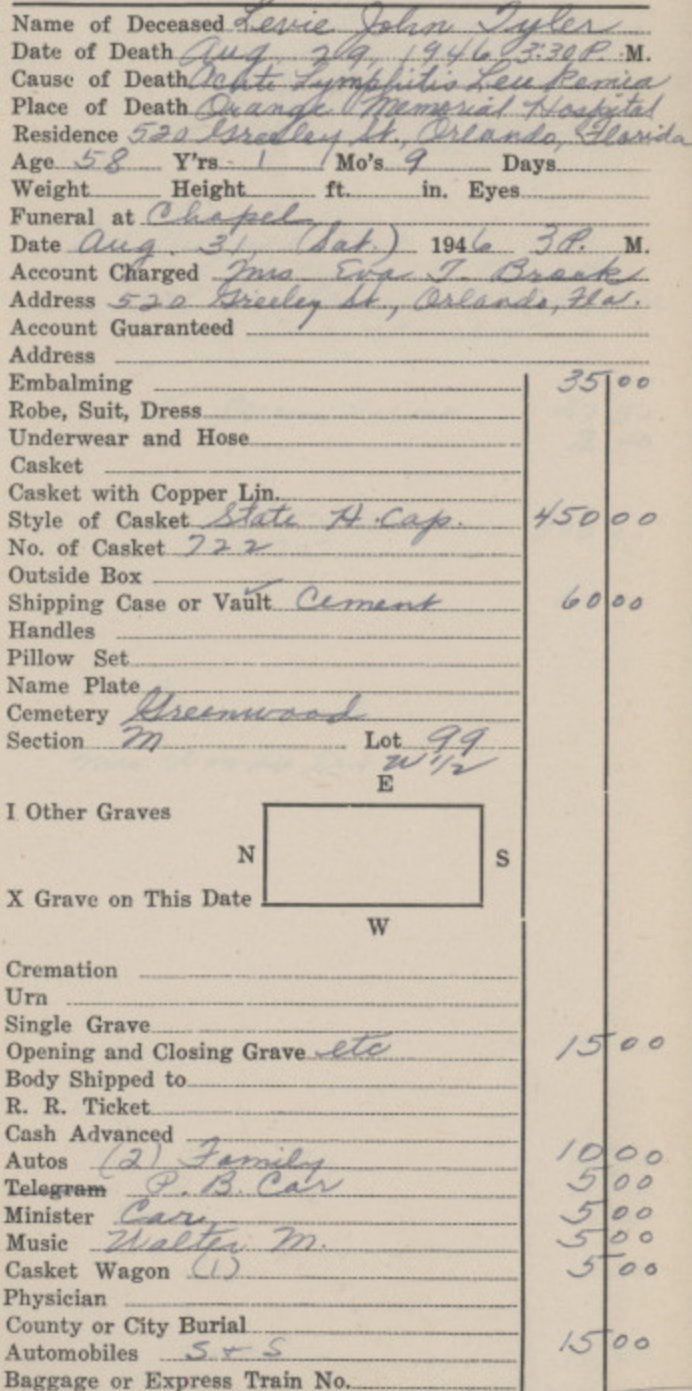 Name of Deceased Levie John Tyler
Date of Death Aug. 29, 1946 3:30 P. M.
Cause of Death Acute Lymphitis Leukemia
Place of Death Orange Memorial Hospital
Residence 520 Greeley St., Orlando, Florida
Age 58 Y'rs 1 Mo's 9 Days
Weight Height ft. in. Eyes
Funeral at Chapel
Date Aug. 31 (Sat.) 1946 3 P. M.
Account Charged Mrs Eva T. Brook
Address 520 Greeley St., Orlando, Fla.
Account Guaranteed
Address
Embalming 35 00
Robe, Suit, Dress
Underwear and Hose
Casket
Casket with Copper Lin.
Style of Casket State H. Cap. 450 00
No. of Casket 722
Outside Box
Shipping Case or Vault Cement 60 00
Handles
Pillow Set
Name Plate
Cemetery Greenwood
Section M Lot 99
W 1/2
E
I Other Graves
N S
X Grave on This Date
W
Cremation
Urn
Single Grave
Opening and Closing Grave etc 15 00
Body Shipped to
R. R. Ticket
Cash Advanced
Autos (2) Family 10 00
Telegram P. B. Car 5 00
Minister Car 5 00
Music Walter M. 5 00
Casket Wagon (1) 5 00
Physician
County or City Burial
Automobiles S + S 15 00
Baggage or Express Train No.